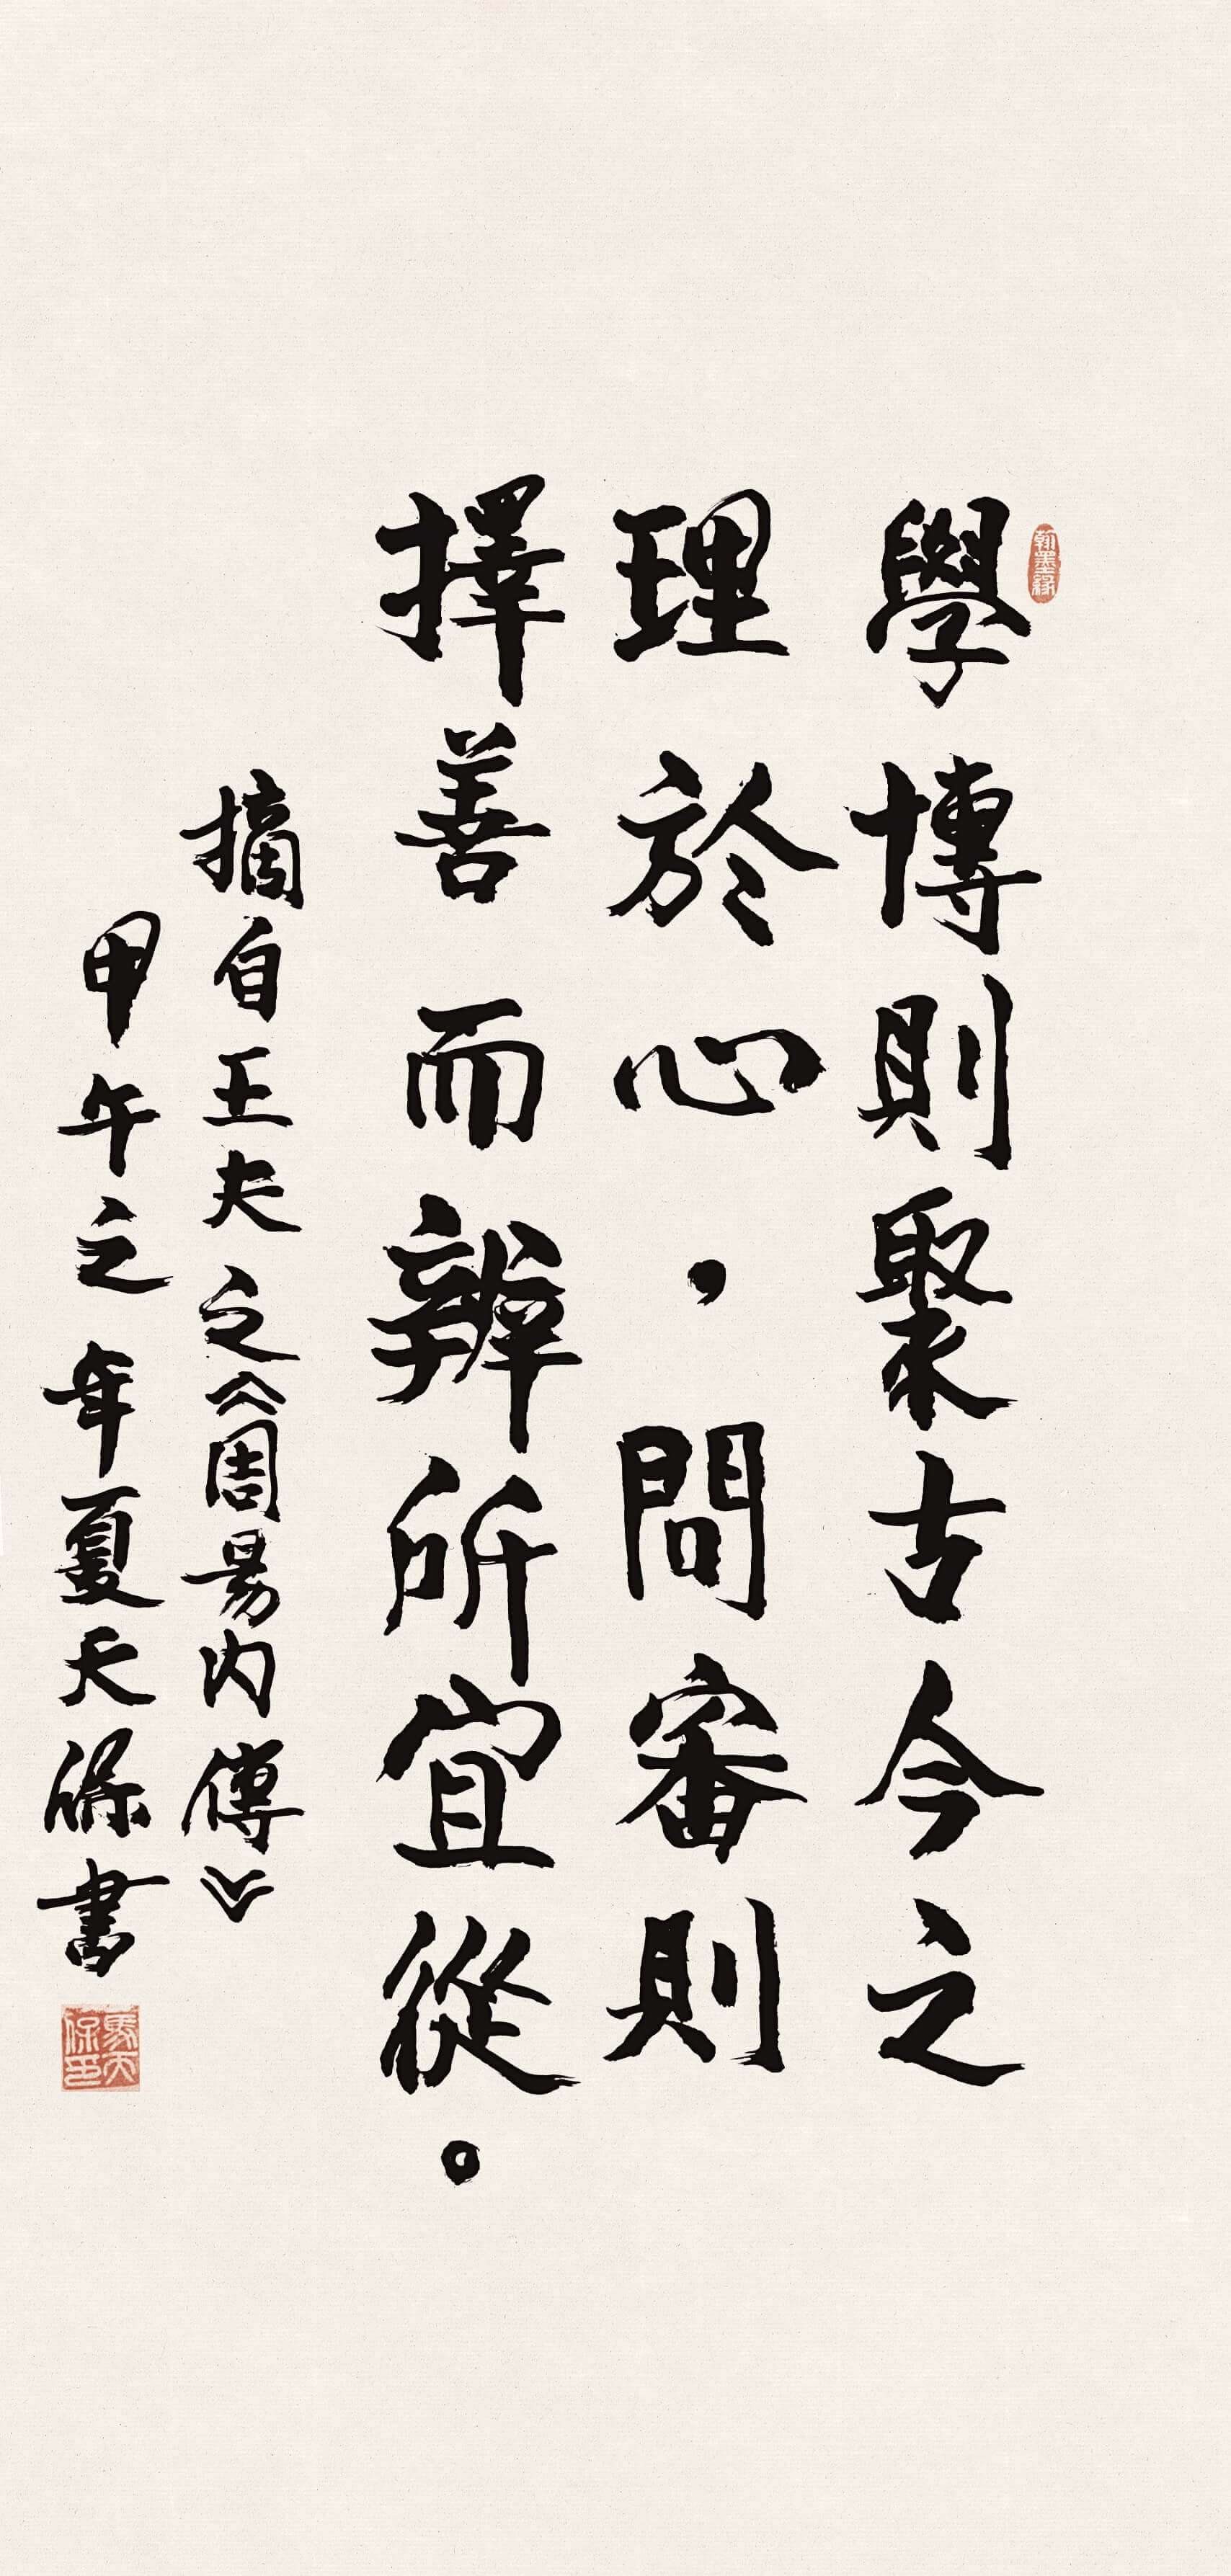 學博則聚古今之
理於心,問審則
擇善而辨所宜從。
摘自王夫之《周易内傳》
甲午之年夏天保書
翰墨緣
馬天保印